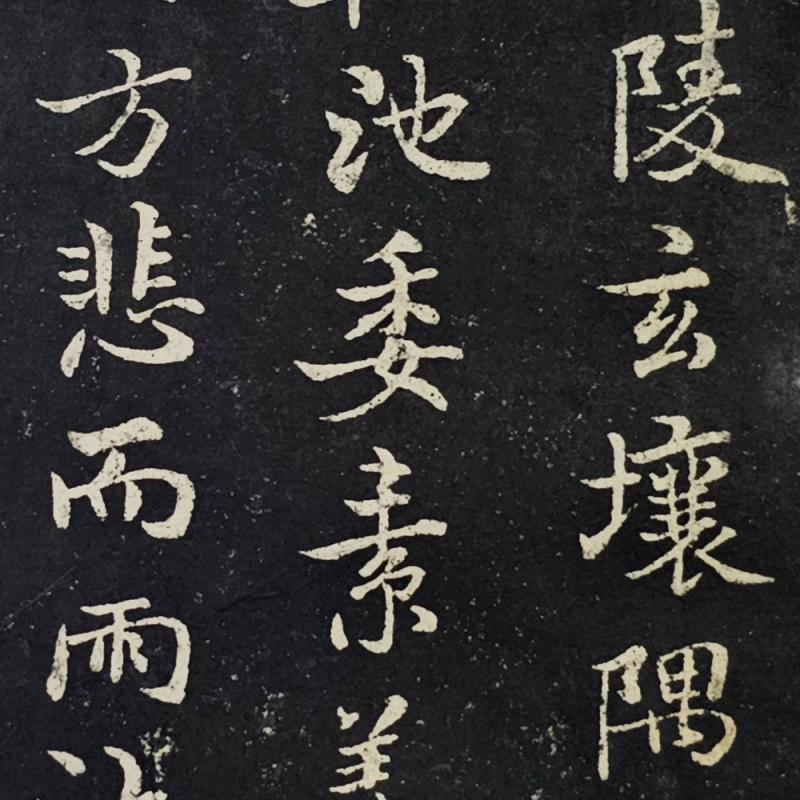 陵玄壤隅
池委素
方悲而雨